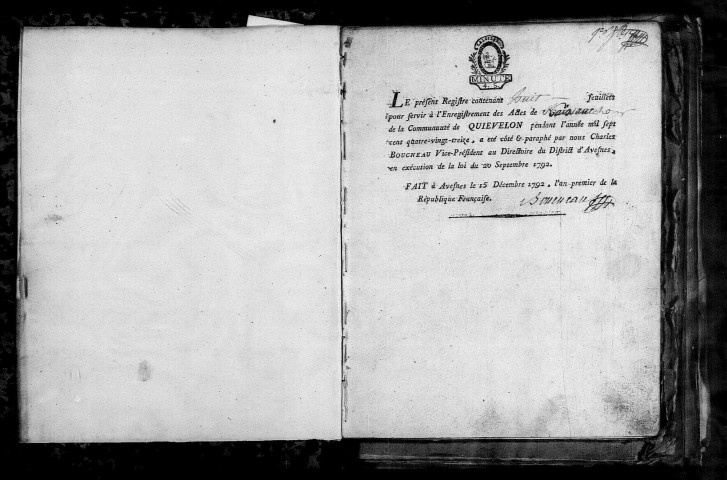 MINUTE
LE présent Registre contenant huit feuillets
pour servir à l'Enregistrement des Actes de Naissances
de la Communauté de QUIEVELON pendant l'année mil sept
cent quatre-vingt-treize, a été côté & paraphé par nous Charles
BOUCNEAU Vice-Président au Directoire du District d'Avesnes,
en exécution de la loi du 20 Septembre 1792.
FAIT à Avesnes le 15 Décembre 1792, l'an premier de la
République Françaïse.
Boucneau